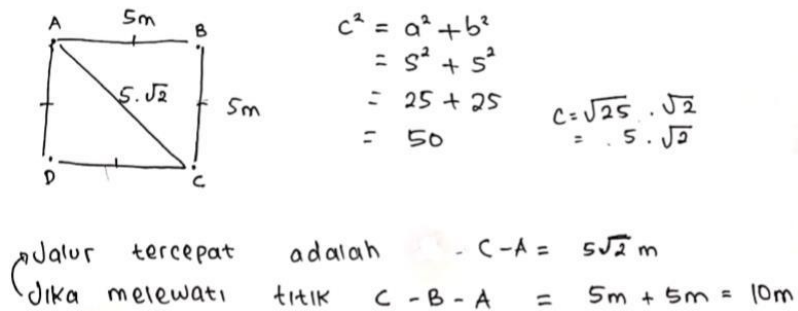 A 5m B
5.√2
5m
D C
c² = a² + b²
= 5² + 5²
= 25 + 25
= 50
C = √25 . √2
= . 5 . √2
Jalur tercepat adalah - C-A = 5√2 m
Jika melewati titik C - B - A = 5m + 5m = 10m